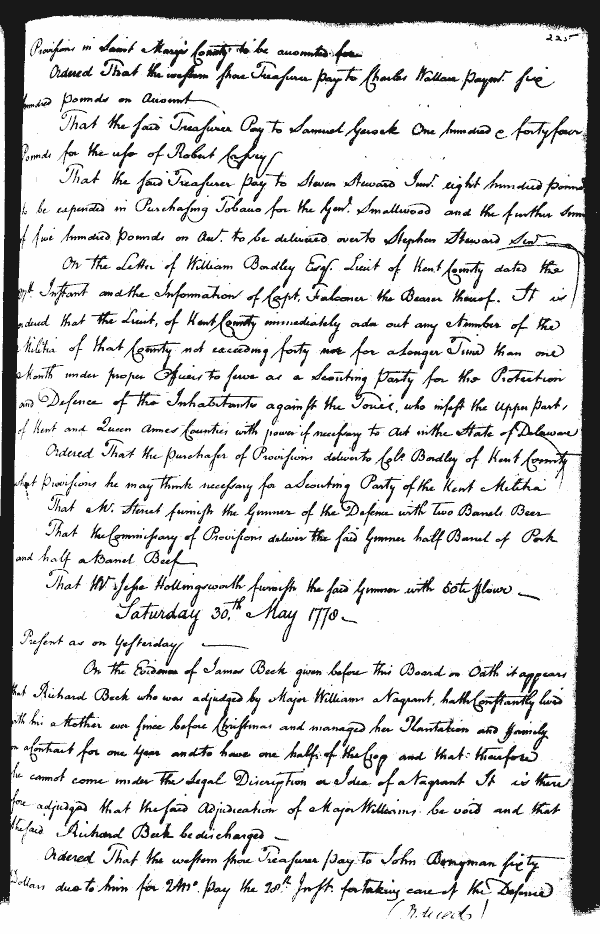 225
Provisions in Saint Mary's County to be accounted for
Ordered That the western shore Treasurer pay to Charles Wallace paymr. six
hundred pounds on Account
That the said Treasurer Pay to Samuel Gerock One hundred & forty four
Pounds for the use of Robert Casey
That the said Treasurer pay to Steven Steward Junr. eight hundred pounds
to be expended in Purchasing Tobacco for the Genl. Smallwood and the further Sum
of five hundred pounds on Acct. to be delivered over to Stephen Steward Senr
On the Letter of William Bordley Esqr. Lieut of Kent County dated the
Instant and the Information of Capt. Falconer the Bearer thereof. It is
ordered that the Lieut. of Kent County immediately order out any Number of the
Militia of that County not exceeding forty nor for a longer Time than one
Month under proper Officers to serve as a Scouting Party for the Protection
and Defence of the Inhabitants against the Tories, who infest the Upper Part,
of Kent and Queen Annes Counties with power if necessary to Act in the State of Delaware
Ordered That the purchaser of Provisions deliver to Colo. Bordley of Kent County
what Provisions he may think necessary for a Scouting Party of the Kent Militia
That Mr. Steret furnish the Gunner of the Defence with two Barrels Beer
That the Commissary of Provisions deliver the said Gunner half Barrel of Pork
and half a Barrel Beef
That Mr Jesse Hollingsworth furnish the said Gunner with 50 lb flour
Saturday 30th. May 1778
Present as on Yesterday
On the Evidence of James Beck given before this Board on Oath it appears
that Richard Beck who was adjudged by Major Williams a Vagrant, hath Constantly lived
with his Mother ever since before Christmas and managed her Plantation and Family
on a Contract for one Year and to have one half of the Crop and that therefore
he cannot come under the Legal Discription or Idea of a Vagrant It is there
fore adjudged that the said Adjudication of Major Williams be void and that
the said Richard Beck be discharged
Ordered That the western shore Treasurer pay to John Bengman sixty
Dollars due to him for 2 Mo. Pay the 28th Inst. for taking care of the Defence
Ordered